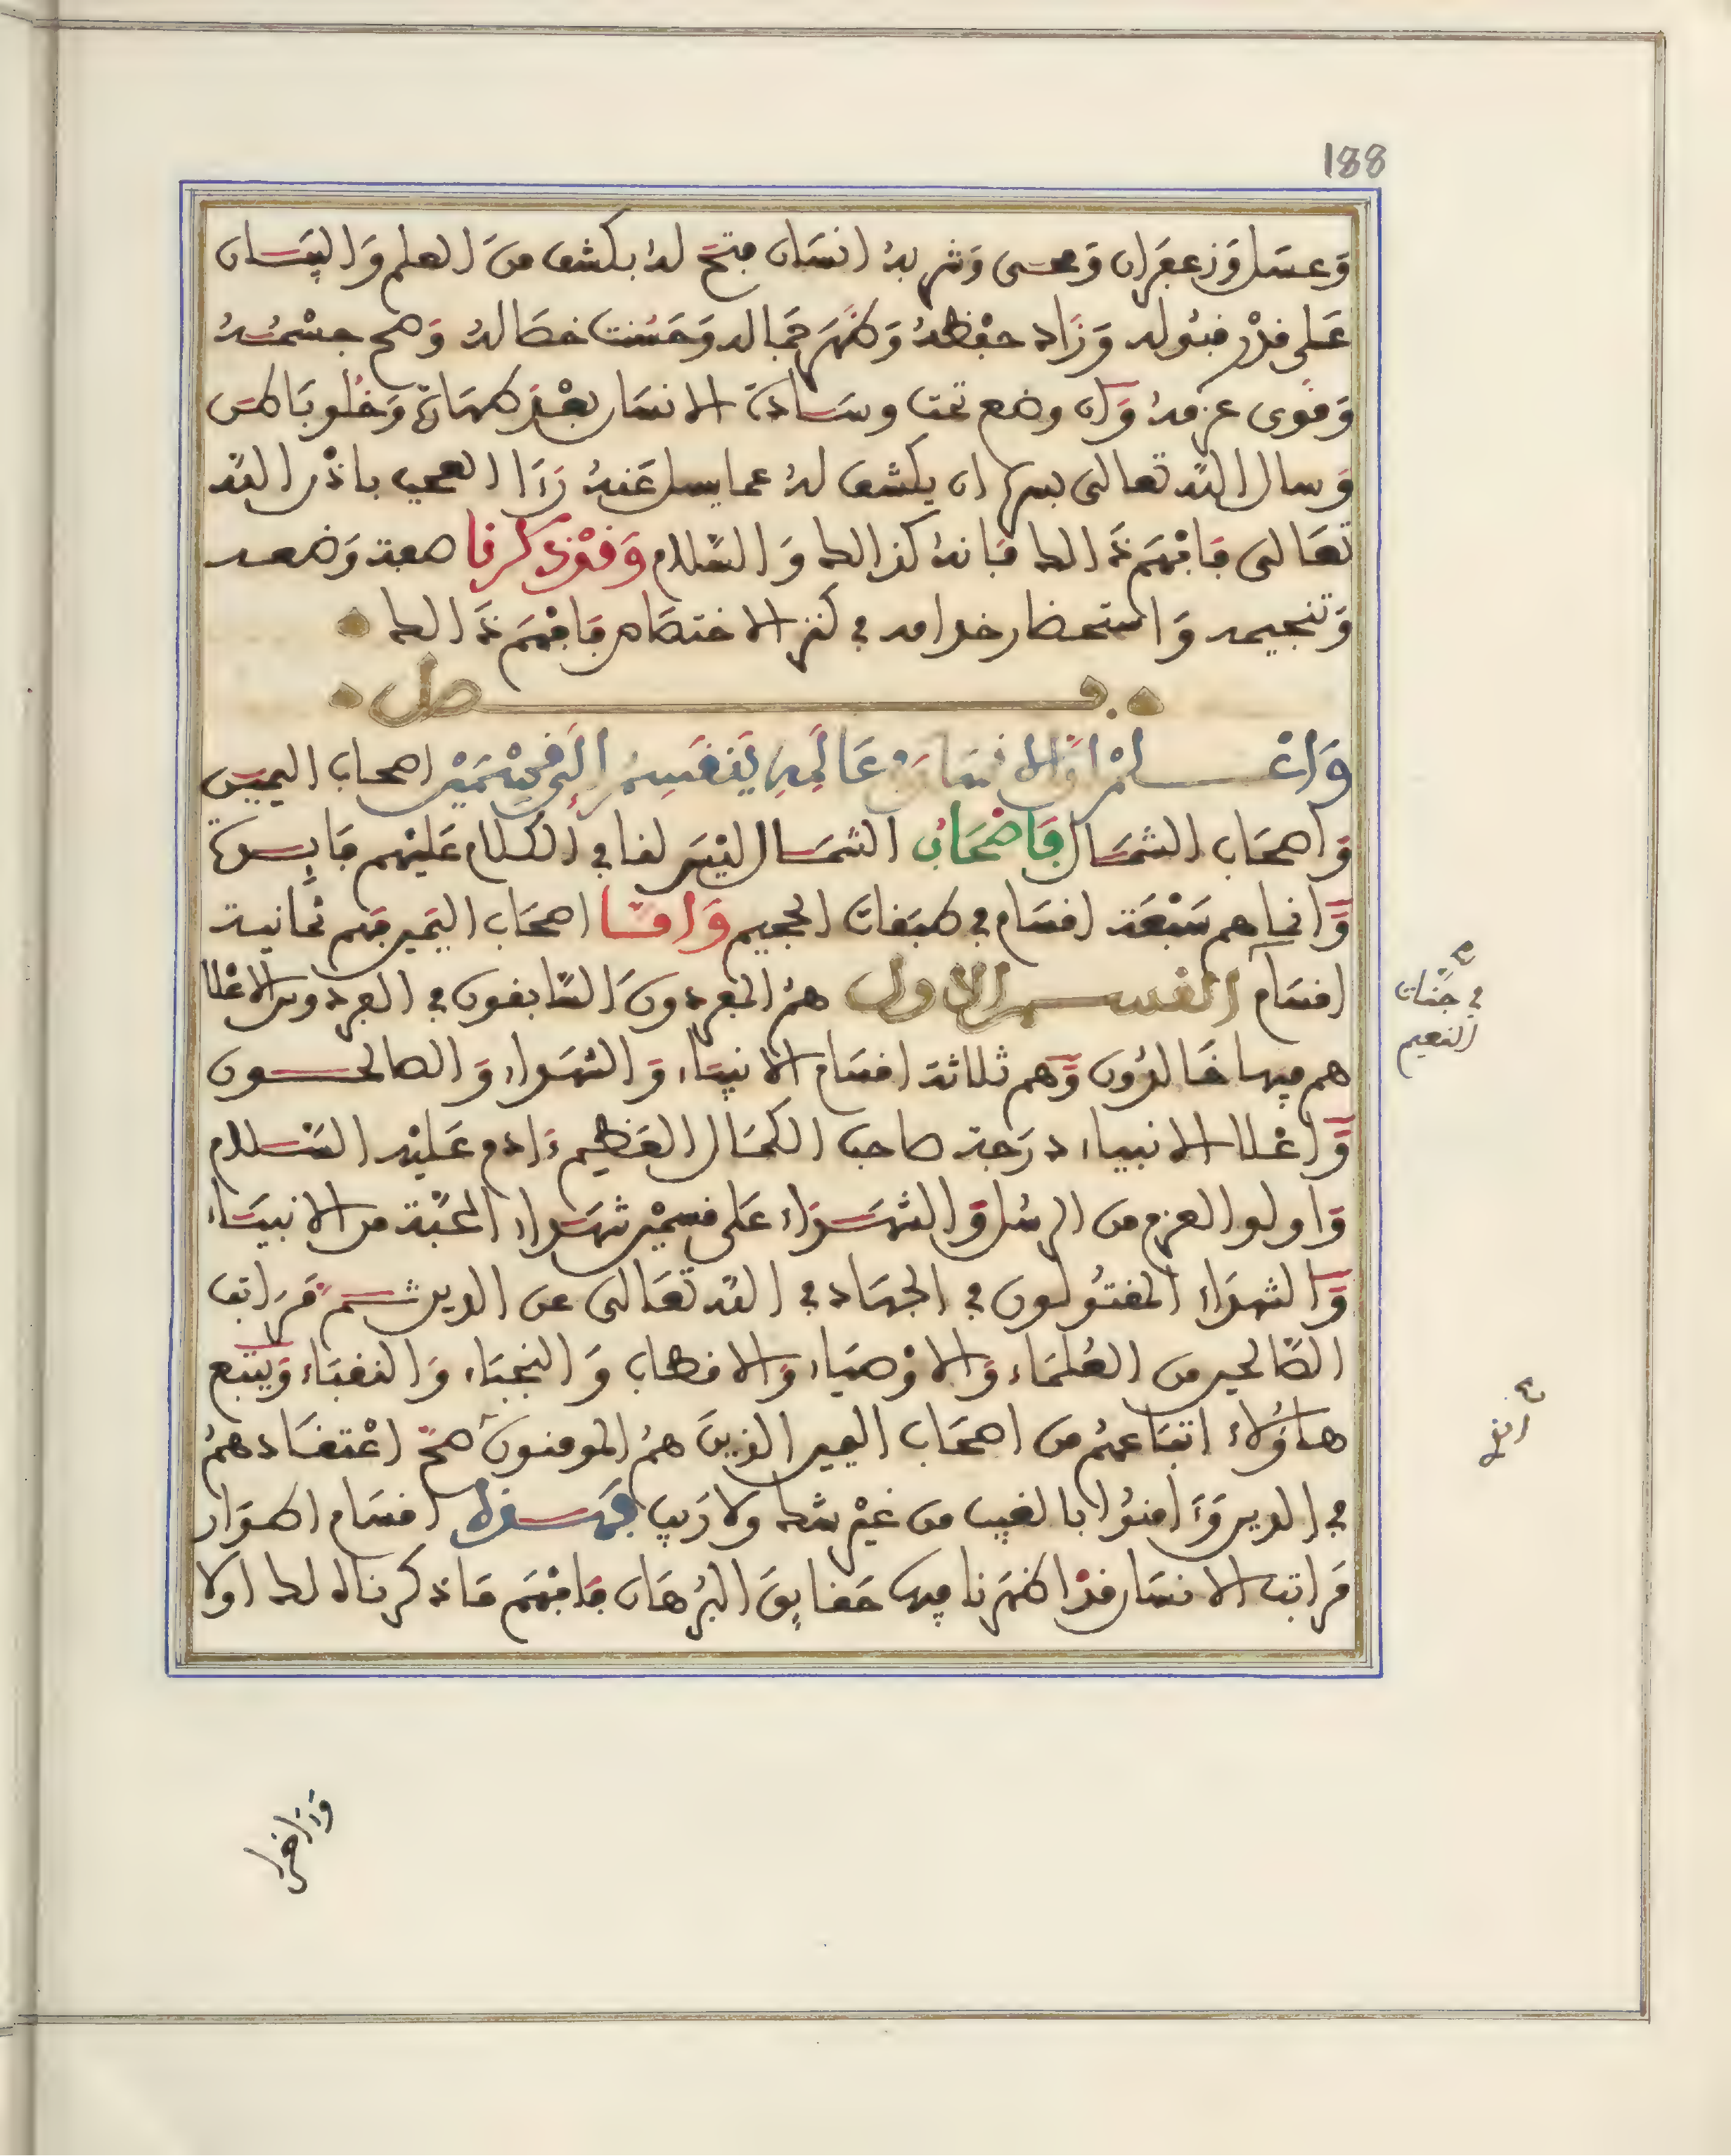 188
وَعسَل وَزعفران وَمحى وَشربهُ انسَان فتحَ لهُ بكشف منَ العلم وَالبيَـان
عَلى قدْر قبُوله وَزَاد حفْظهُ وَظهَر جمَاله وَحَسُنت خصَاله وَصح جسْمُــهُ
وَقوى عزمهُ وَان وضع تحت وسَـادة الانسَان بعْدَ طهَارة وَخلو بَاطن
وَسال الله تعالى بسرها ان يكشف لهُ عما يسل عَنهُ رَءَا العجب باذْن الله
تعَالى فَافْهَم ذَالك فَانهُ كذالك وَالسَّلام وَقدْ ذكرنا صفة وَضعــه
وَتنجيمه وَاستحضار خدامه في كنز الاختصَاص فَافْهَم ذَالك
فــــصل
وَاعْـــلمْ انَّ الانسَان عَالَمه يَنْقَسِمُ إلَى قِسْمَيْن اصحاب اليميـن
وَاصحَاب الشمَـال فَاصْحَابُ الشمَـال ليْسَ لنا في الكلام عَليْهم فَايــدة
وَّانما هم سَبْعَة اقسَام في طبَقات الجحيم وَامـــا اصحَاب اليَمين فهم ثمانيـة
اقسَام القســم الاول همُ المفردونَ السَّابقون في الفردوس الاعْلا
في جَنَّات
النعيم
هم فيها خَالدُون وَّهم ثلاثة اقسَام الانبيَاء وَالشهَداء وَالصالحــون
وَّاعْلا الانبياء درَجة صاحب الكمَال العَظيم ءَادم عَليْه السَّـلام
وَاولو العزم من الرسُل وَالشهَـدَاء عَلى قسميْن شهَداء المحَبَّة من الانبيَـاء
وَّالشهدَاء المقتُولون في الجهَاد في الله تعَالى عن الدين ثـــم مَرَاتب
الصَّالحين من العُلمَاء وَالاوْصيَاء وَالاقطاب وَالنجبَاء وَالنقبَاء وَيتبع
هـاؤُلاء اتبَاعهُم من اصحَاب اليمين الذينَ همُ المومنونَ صحَّ اعْتقَـادهمُ
في الدين وَءَامنُوا بالغيب من غيْر شك ولا رَيب فهَــذه اقسَام اطـوَار
مَراتب الانسَان قدْ اظهَرنا فيها حَقايقَ البرُهَان فَافْهَم مَا ذكرناه لك اولا
وَءَاخرا